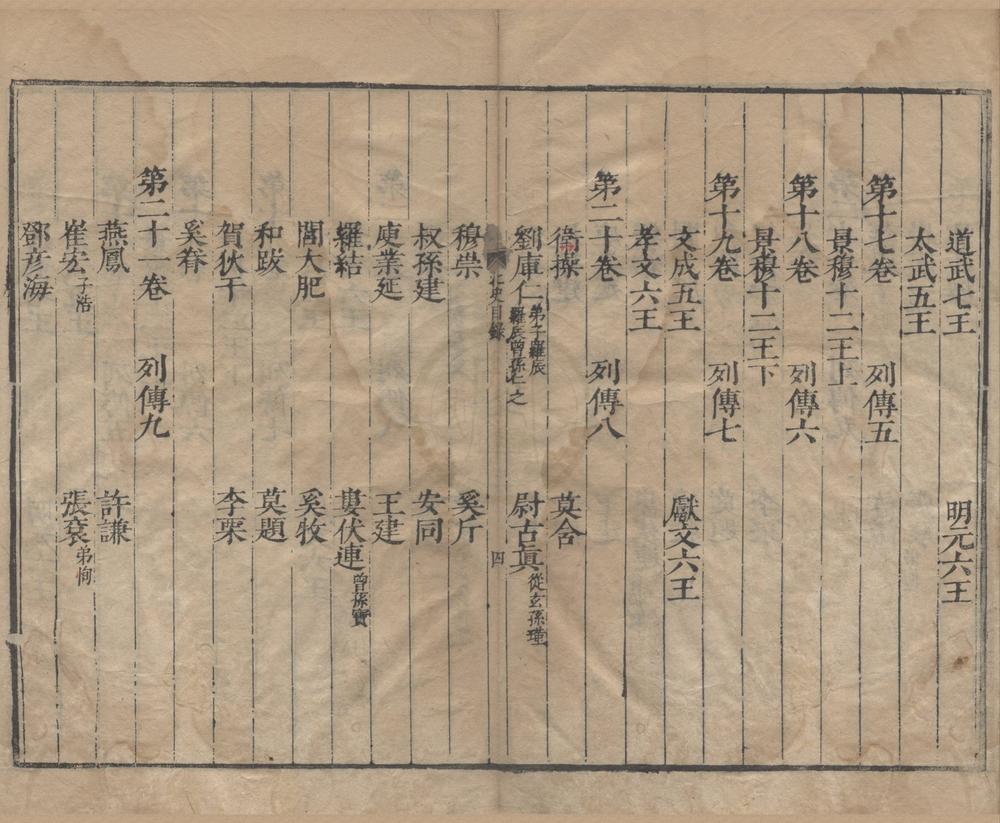 道武七王　明元六王
太武五王
第十七卷　列傳五
景穆十二王上
第十八卷　列傳六
景穆十二王下
第十九卷　列傳七
文成五王　獻文六王
孝文六王
第二十卷　列傳八
衛操　莫含
劉庫仁弟子羅辰　羅辰曾孫仁之　尉古眞從玄孫瑾
北史目錄　四
穆崇　奚斤
叔孫建　安同
庾業延　王建
羅結　婁伏連曾孫寶
閭大肥　奚牧
和跋　莫題
賀狄干　李栗
奚眷
第二十一卷　列傳九
燕鳳　許謙
崔宏子浩　張袞弟恂
鄧彦海